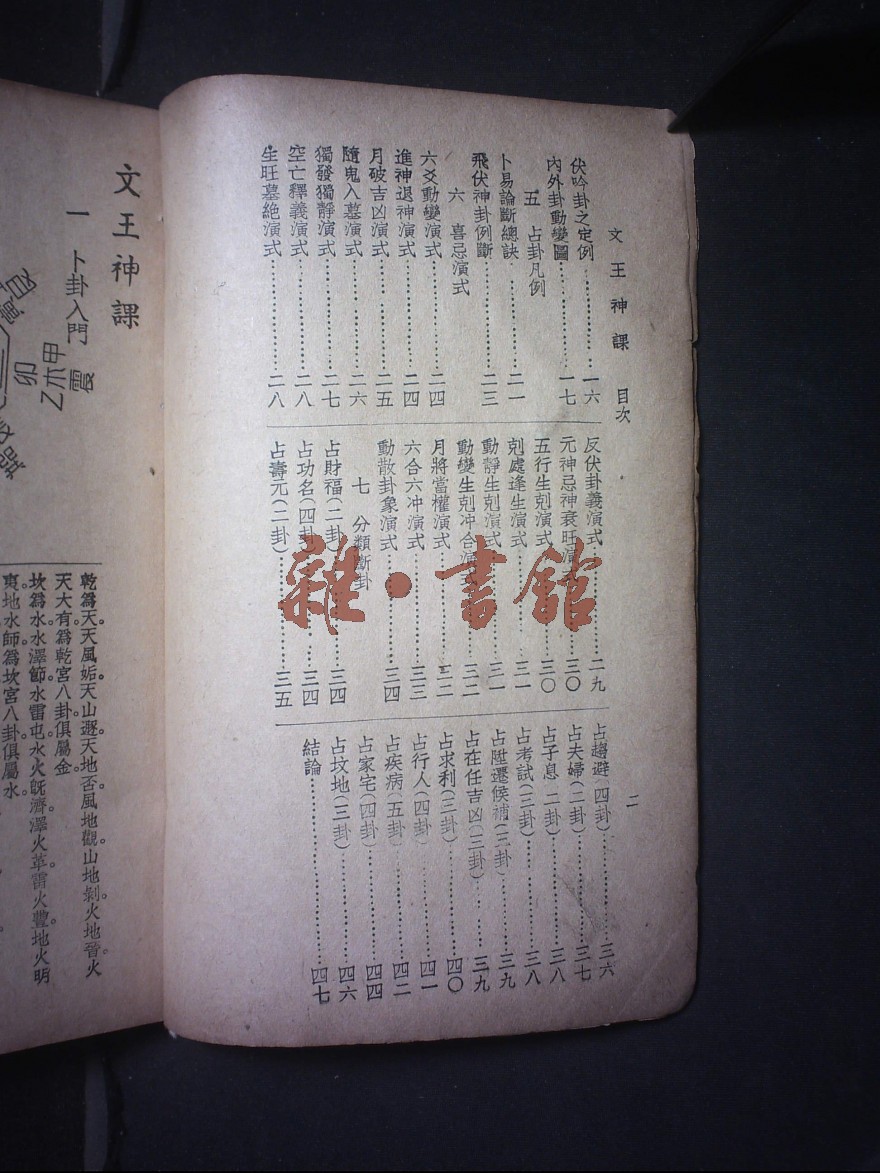 文王神課 目次
二
伏吟卦之定例……一六
內外卦動變圖……一七
五 占卦凡例
卜易論斷總訣……二一
飛伏神卦例斷……二三
六 喜忌演式
六爻動變演式……二四
進神退神演式……二四
月破吉凶演式……二五
隨鬼入墓演式……二六
獨發獨靜演式……二七
空亡釋義演式……二八
生旺墓絕演式……二八
反伏卦義演式……二九
元神忌神衰旺演式……三〇
五行生剋演式……三〇
剋處逢生演式……三一
動靜生剋演式……三一
動變生剋冲合演式……三二
月將當權演式……三二
六合六冲演式……三三
動散卦象演式……三四
七 分類斷卦
占財福(二卦)……三四
占功名(四卦)……三四
占壽元(二卦)……三五
占趨避(四卦)……三六
占夫婦(二卦)……三七
占子息(二卦)……三八
占考試(三卦)……三八
占陞遷候補(三卦)……三九
占在任吉凶(三卦)……三九
占求利(三卦)……四〇
占行人(四卦)……四一
占疾病(五卦)……四二
占家宅(四卦)……四四
占坟地(三卦)……四六
結論……四七
文王神課
一 卜卦入門
震
甲木乙
卯
乾爲天天風姤天山遯天地否風地觀山地剝火地晉火
天大有爲乾宮八卦俱屬金
坎爲水水澤節水雷屯水火旣濟澤火革雷火豐地火明
夷地水師爲坎宮八卦俱屬水
雜·書館